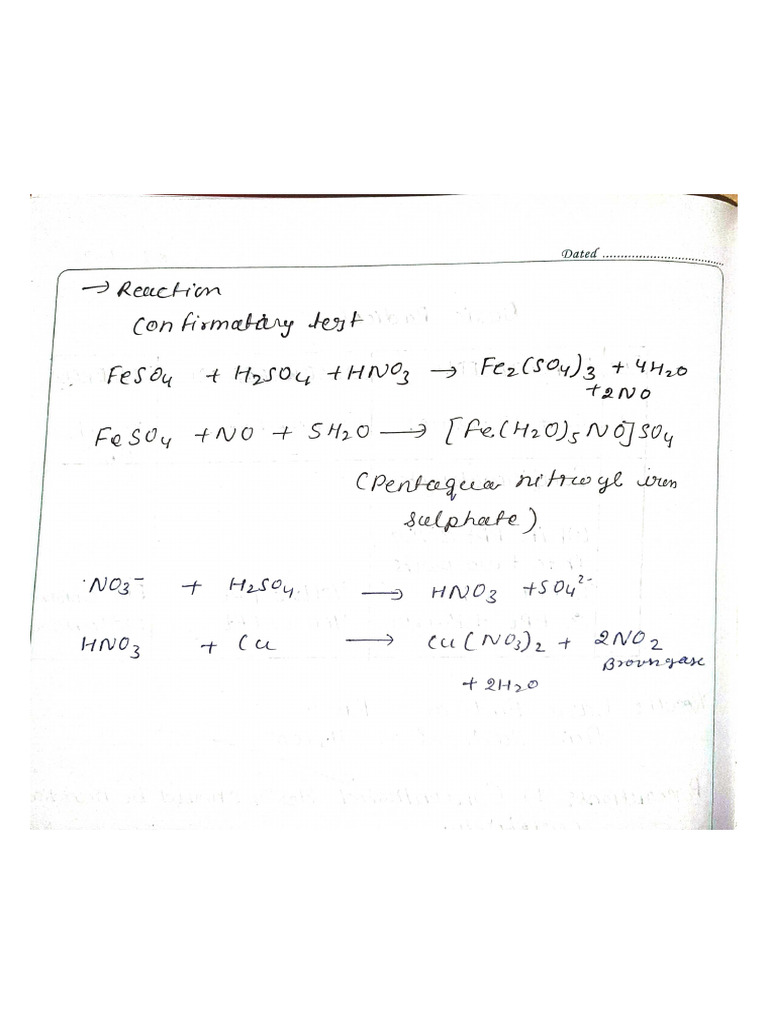 Dated ....................................
→ Reaction
Confirmatary test
FeSO4 + H2SO4 + HNO3 → Fe2(SO4)3 + 4H2O
+ 2NO
FeSO4 + NO + 5H2O → [Fe(H2O)5 NO]SO4
(Pentaqua nitrosyl iron
sulphate)
NO3⁻ + H2SO4 → HNO3 + SO4²⁻
HNO3 + Cu → Cu(NO3)2 + 2NO2
Brown gase
+ 2H2O